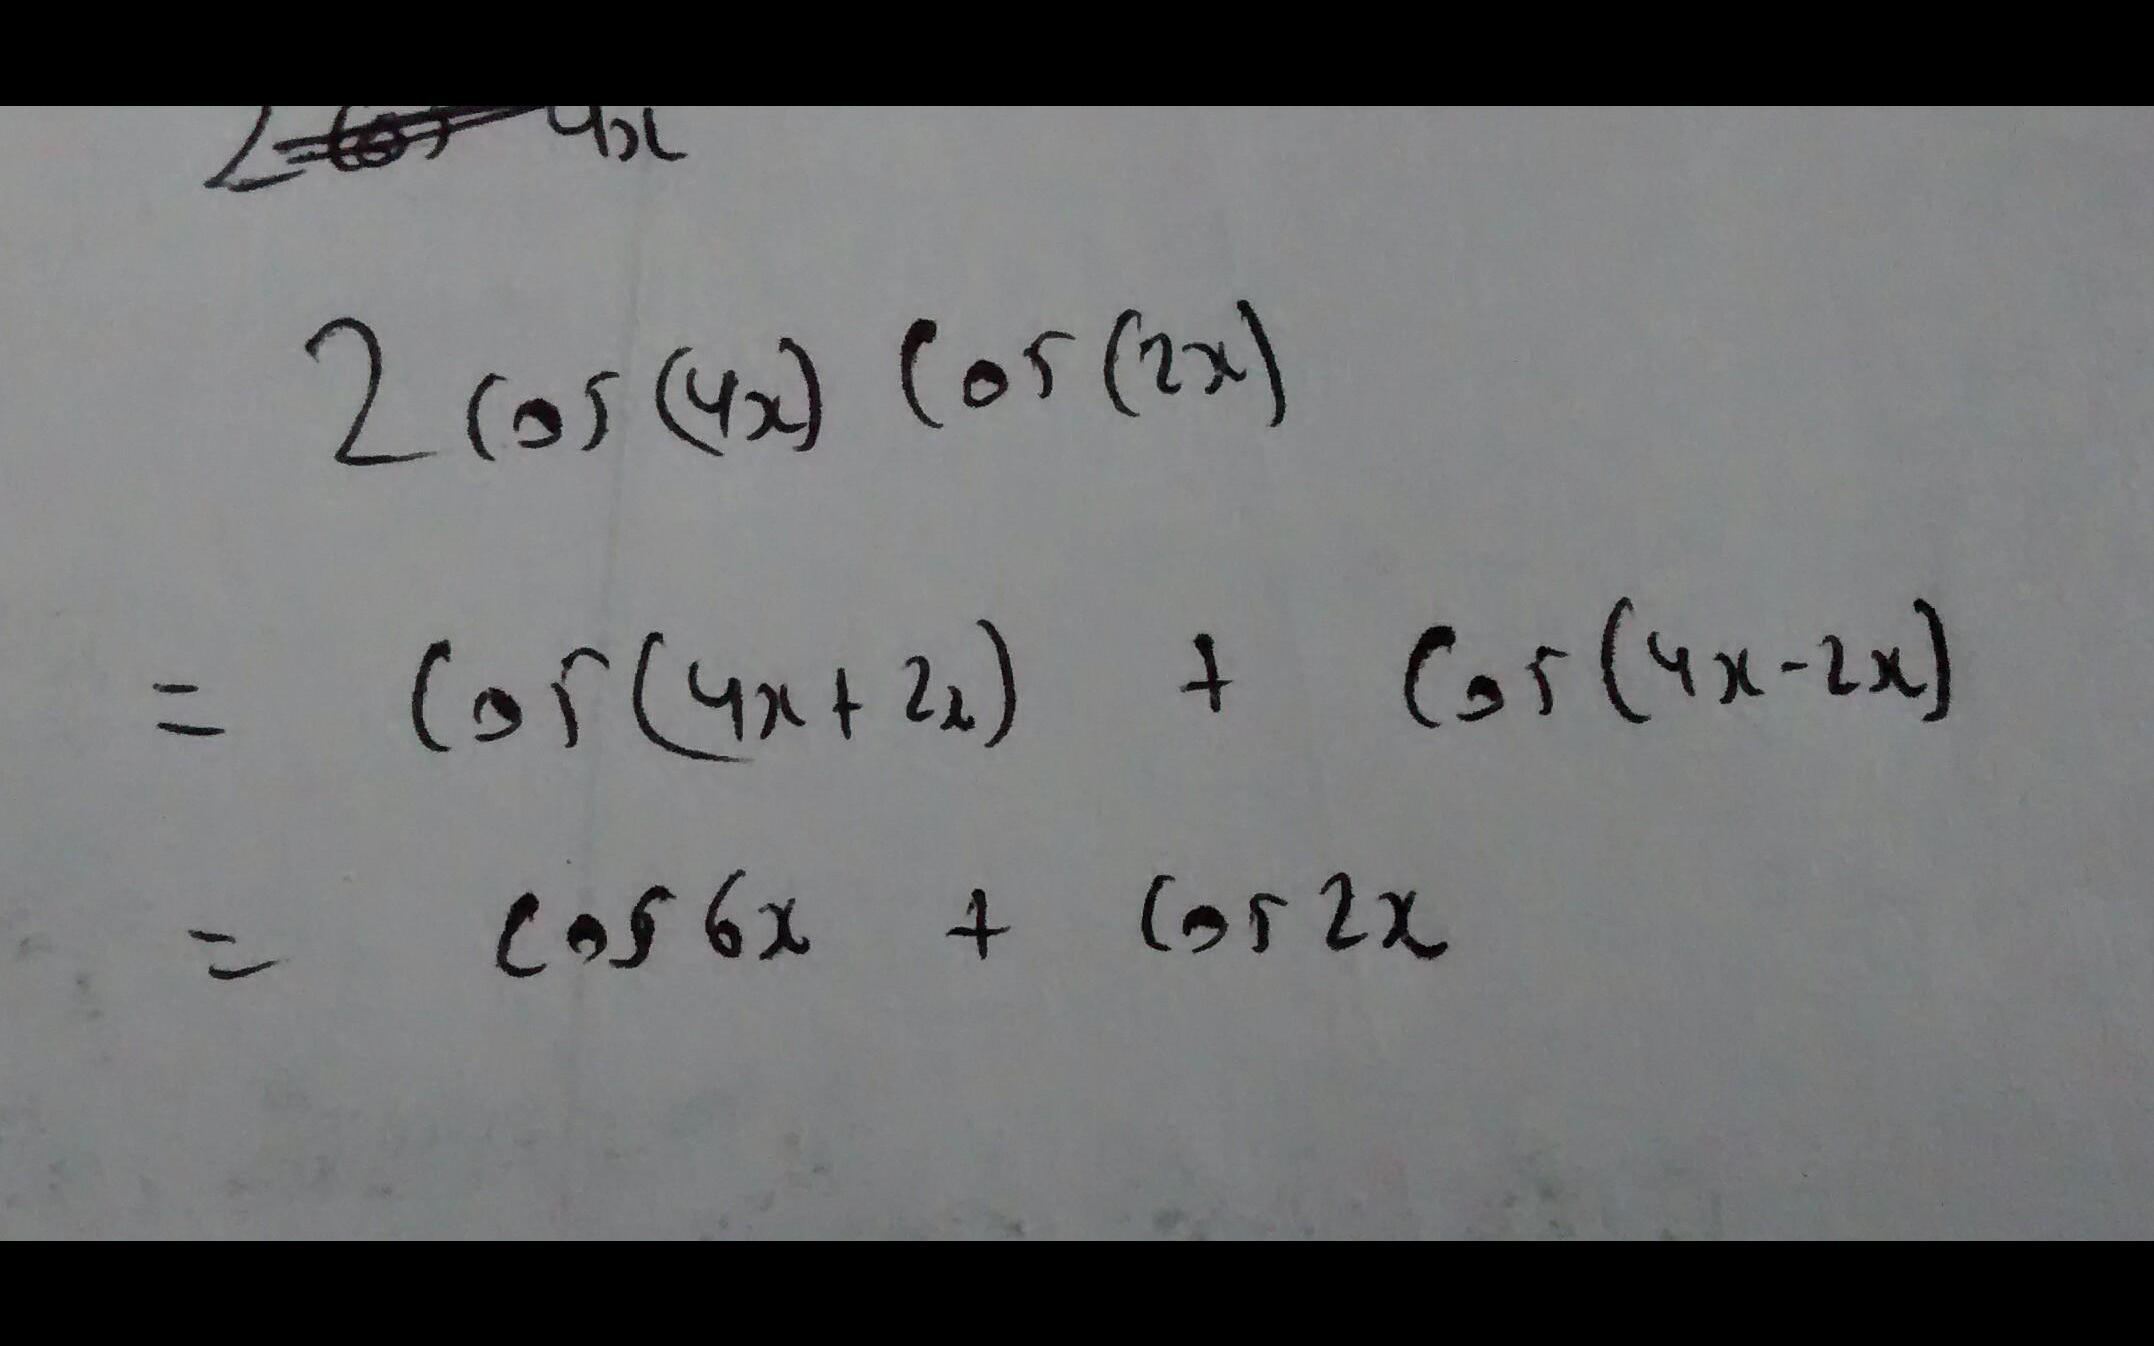 2 cos 4x
2 cos (4x) cos (2x)
= cos (4x + 2x) + cos (4x - 2x)
= cos 6x + cos 2x